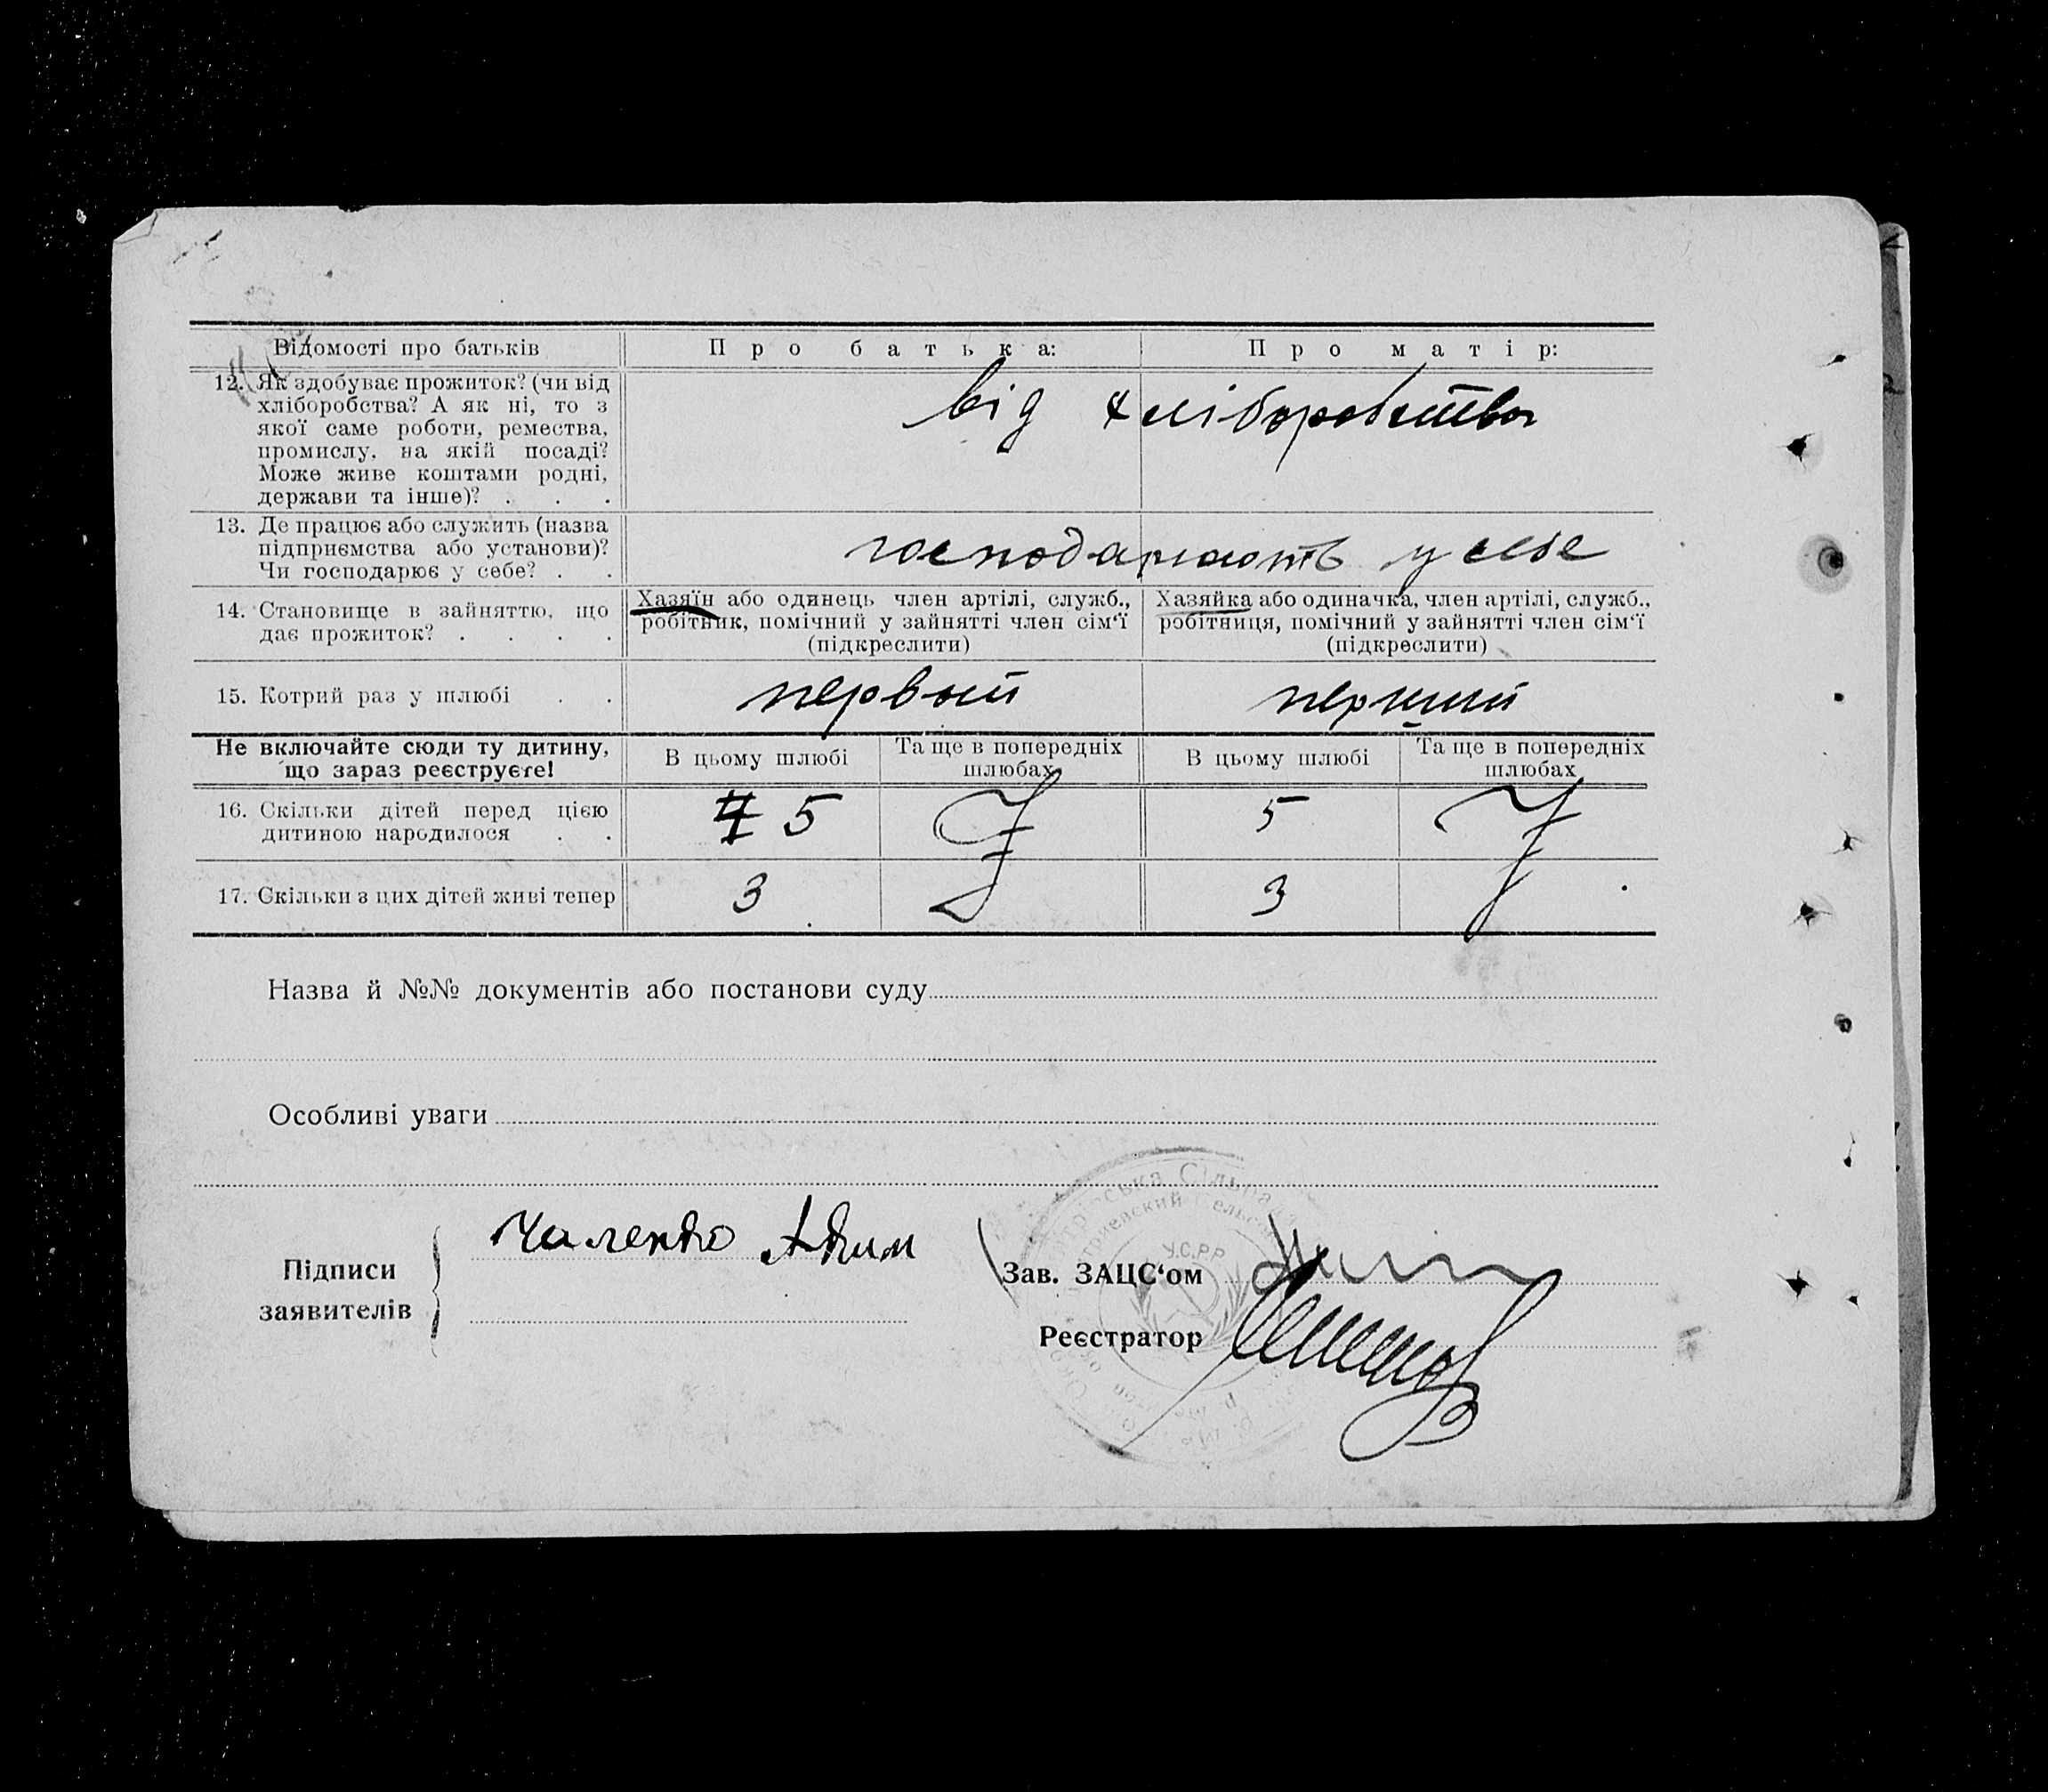 Відомості про батьків
Про батька:
Про матір:
12. Як здобуває прожиток? (чи від
хліборобства? А як ні, то з
якої саме роботи, ремества,
промислу, на якій посаді?
Може живе коштами родні,
держави та інше)? . . .
від хліборобства
13. Де працює або служить (назва
підприємства або установи)?
Чи господарює у себе? . .
господарюють у себе
14. Становище в зайняттю, що
дає прожиток? . . . .
Хазяїн або одинець член артілі, служб.,
робітник, помічний у зайнятті член сім‘ї
(підкреслити)
Хазяйка або одиначка, член артілі, служб.,
робітниця, помічний у зайнятті член сім‘ї
(підкреслити)
15. Котрий раз у шлюбі . .
первый
перший
Не включайте сюди ту дитину,
що зараз реєструєте!
В цьому шлюбі
Та ще в попередніх
шлюбах
В цьому шлюбі
Та ще в попередніх
шлюбах
16. Скільки дітей перед цією
дитиною народилося . .
5
5
17. Скільки з цих дітей живі тепер
3
3
Назва й №№ документів або постанови суду
Особливі уваги
Підписи
заявителів
Чаленко
Зав. ЗАЦС‘ом
Реєстратор
У.С.Р.Р.